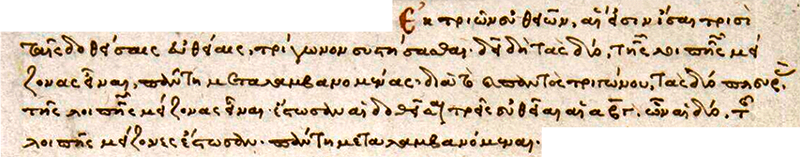 Ἐκ τριῶν εὐθειῶν, αἵ εἰσιν ἴσαι τρισὶ
ταῖς δοθείσαις εὐθείαις, τρίγωνον συστήσασθαι· δεῖ δὴ τὰς δύο, τῆς λοιπῆς μεί
ζονας εἶναι, πάντη μεταλαμβανομένας· διὰ τὸ παντὸς τριγώνου, τὰς δύο πλευρὰς
τῆς λοιπῆς μείζονας εἶναι· ἔστωσαν αἱ δοθεῖσαι τρεῖς εὐθεῖαι αἱ α β γ. ὧν αἱ δύο, τῆς
λοιπῆς μείζονες ἔστωσαν· πάντη μεταλαμβανόμεναι·